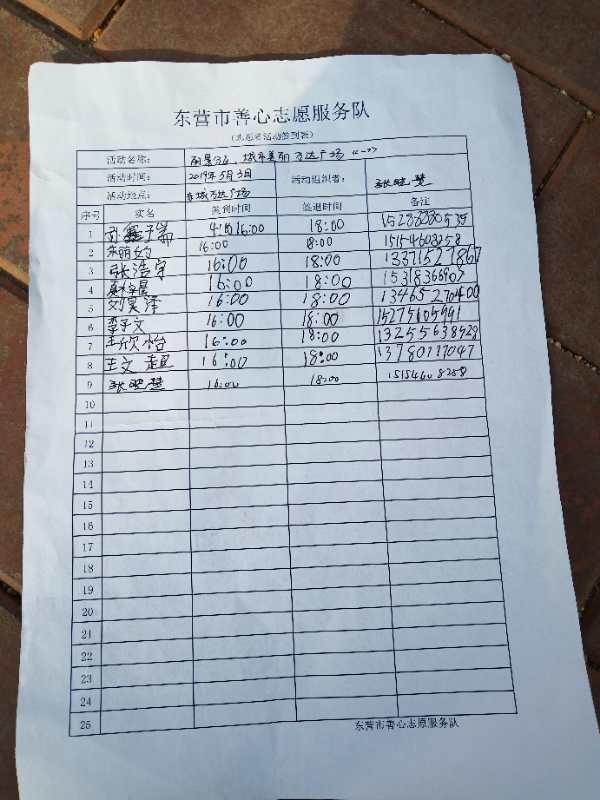 东营市善心志愿服务队
(志愿者活动签到表)
活动名称: 城市美丽 万达广场 《一》
活动时间: 2019年5月3日 活动组织者: 张晓慧
活动地点: 东城万达广场
序号 实名 签到时间 签退时间 备注
1 16:00 18:00
2 16:00 18:00 15154608258
3 张浩宇 16:00 18:00 13371527867
4 16:00 18:00 15318366907
5 刘昊泽 16:00 18:00 13465270400
6 李子文 16:00 18:00 15275105991
7 王欣怡 16:00 18:00 13255638528
8 王文超 16:00 18:00 13780777047
9 张晓慧 16:00 18:00 15154608258
10
11
12
13
14
15
16
17
18
19
20
21
22
23
24
25
东营市善心志愿服务队